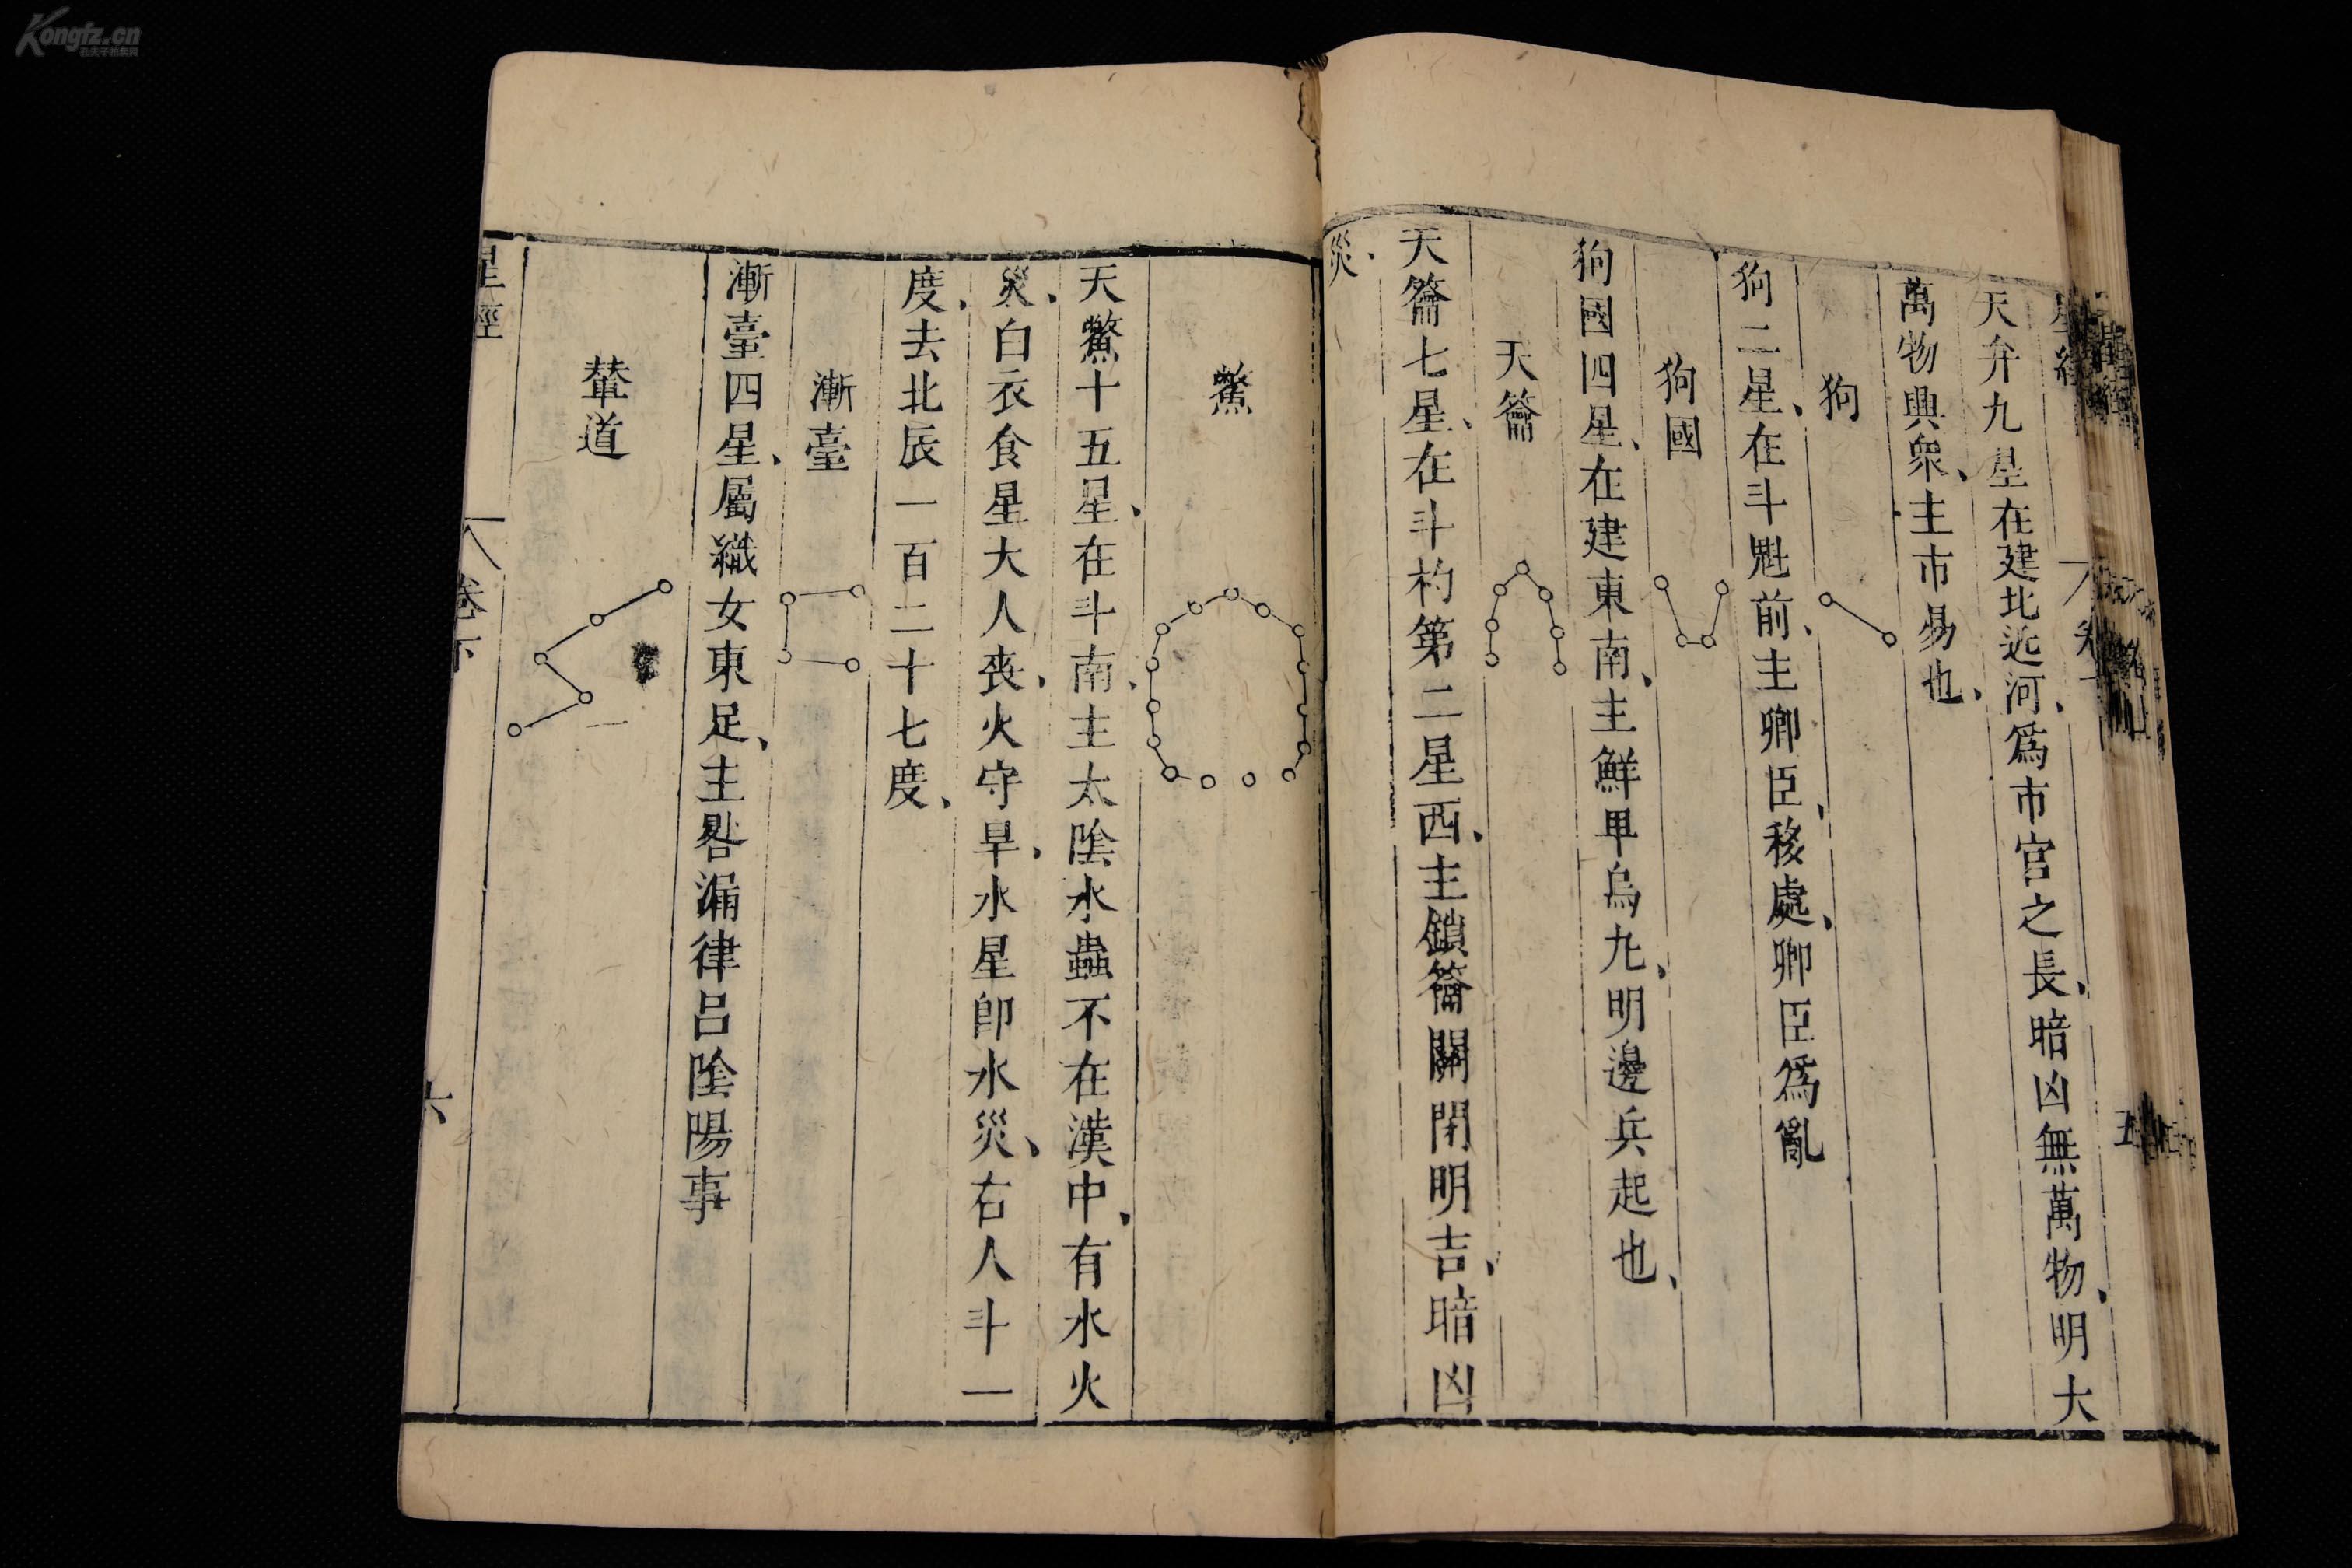 Kongfz.cn
孔夫子拍卖网
天弁九星在建北近河、爲市官之長、暗凶無萬物、明大
萬物興衆、主市易也、
狗
狗二星、在斗魁前、主卿臣、移處、卿臣爲亂
狗國
狗國四星、在建東南、主鮮卑烏九、明邊兵起也、
天籥
天籥七星、在斗杓第二星西、主鎖籥關閉明吉、暗凶
災、
鱉
天鱉十五星、在斗南、主太陰水蟲不在漢中、有水火
災、白衣食星大人喪、火守旱、水星卽水災、右人斗一
度、去北辰一百二十七度、
漸臺
漸臺四星、屬織女東足、主晷漏律呂陰陽事
輦道
星經
卷下
六